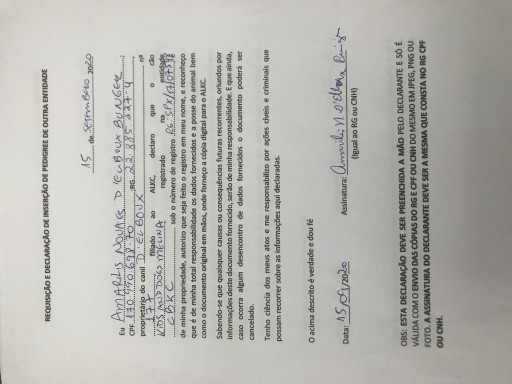 REQUISIÇÃO E DECLARAÇÃO DE INSERÇÃO DE PEDIGREE DE OUTRA ENTIDADE
15 de Setembro 2020
Eu AMARILIS NOVAES D'ELBOUX BUNGER
CPF 170.990.698-70 RG 22.885.227-4
proprietário do canil D'ELBOUX nº
177 filiado ao ALKC, declaro que o cão
KIDS AND DOGS MELINA registrado na entidade
CBKC sob o número de registro RG SPX/17/07538 de
de minha propriedade, autorizo que seja feito o registro em meu nome, e reconheço
que é de minha total responsabilidade os dados fornecidos e a posse do animal bem
como o documento original em mãos, onde forneço a cópia digital para o ALKC.
Sabendo-se que quaisquer causas ou consequências futuras recorrentes, oriundos por
informações deste documento fornecido, serão de minha responsabilidade. E que ainda,
caso ocorra algum desencontro de dados fornecidos o documento poderá ser
cancelado.
Tenho ciência dos meus atos e me responsabilizo por ações cíveis e criminais que
possam recorrer sobre as informações aqui declaradas.
O acima descrito é verdade e dou fé
Data: 15/09/2020 Assinatura:
(Igual ao RG ou CNH)
OBS: ESTA DECLARAÇÃO DEVE SER PREENCHIDA A MÃO PELO DECLARANTE E SÓ É
VÁLIDA COM O ENVIO DAS CÓPIAS DO RG E CPF OU CNH DO MESMO EM JPEG, PNG OU
FOTO. A ASSINATURA DO DECLARANTE DEVE SER A MESMA QUE CONSTA NO RG CPF
OU CNH.